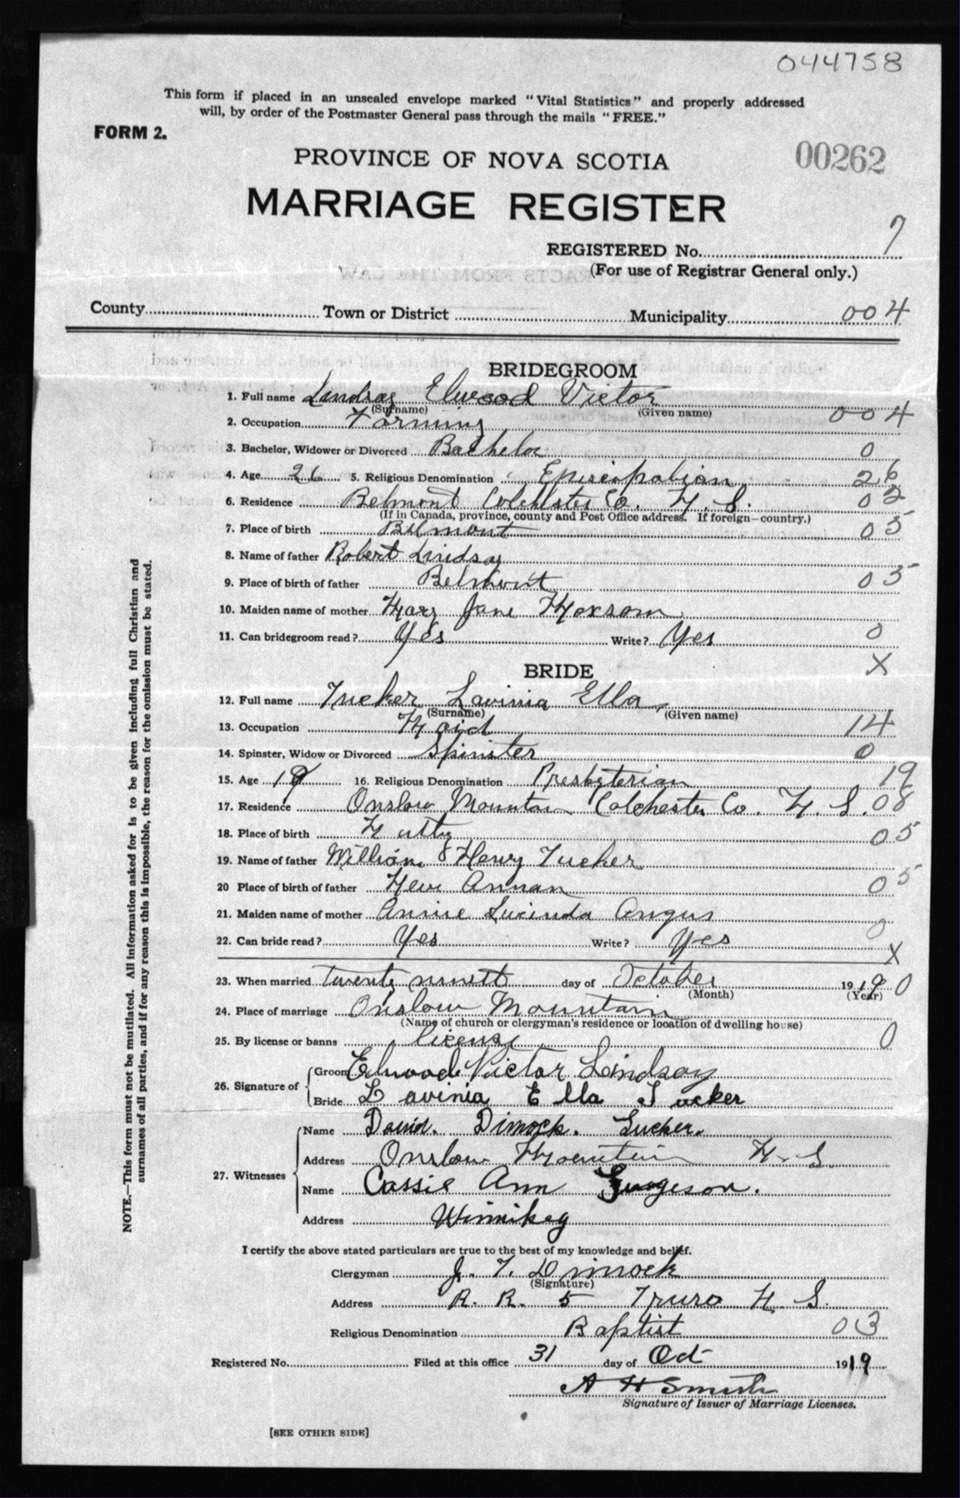 044758
This form if placed in an unsealed envelope marked "Vital Statistics" and properly addressed
will, by order of the Postmaster General pass through the mails "FREE."
FORM 2.
PROVINCE OF NOVA SCOTIA
00262
MARRIAGE REGISTER
REGISTERED No. 7
(For use of Registrar General only.)
County Town or District Municipality 004
BRIDEGROOM
1. Full name Lindsay Elwood Victor
(Surname) (Given name)
2. Occupation Farming 004
3. Bachelor, Widower or Divorced Bachelor 0
4. Age 26 5. Religious Denomination Episcipalian 26
6. Residence Belmont Colchester Co. N. S. 02
(If in Canada, province, county and Post Office address. If foreign—country.)
7. Place of birth Belmont 05
8. Name of father Robert Lindsay
9. Place of birth of father Belmont 05
10. Maiden name of mother Mary Jane
11. Can bridegroom read? Yes Write? Yes 0
X
BRIDE
12. Full name Tucker Lavinia Ella
(Surname) (Given name)
13. Occupation Maid 14
14. Spinster, Widow or Divorced Spinster 0
15. Age 19 16. Religious Denomination Presbyterian 19
17. Residence Onslow Mountain Colchester Co. N. S. 08
18. Place of birth 05
19. Name of father William Henry Tucker
20 Place of birth of father New Annan 05
21. Maiden name of mother Annie Lucinda Angus
22. Can bride read? Yes Write? Yes 0
X
23. When married twenty ninth day of October 1919 0
(Month) (Year)
24. Place of marriage Onslow Mountain
(Name of church or clergyman's residence or location of dwelling house)
25. By license or banns license 0
26. Signature of
Groom Elwood Victor Lindsay
Bride Lavinia Ella Tucker
27. Witnesses
Name David. Dimock. Tucker.
Address Onslow Mountain N. S.
Name Cassie Ann
Address Winnipeg
I certify the above stated particulars are true to the best of my knowledge and belief.
Clergyman J. T. Dimock
(Signature)
Address R. R. 5 Truro N. S.
Religious Denomination Baptist 03
Registered No. Filed at this office 31 day of Oct 1919
A H Smith
Signature of Issuer of Marriage Licenses.
[SEE OTHER SIDE]
NOTE.—This form must not be mutilated. All information asked for is to be given including full Christian and
surnames of all parties, and if for any reason this is impossible, the reason for the omission must be stated.